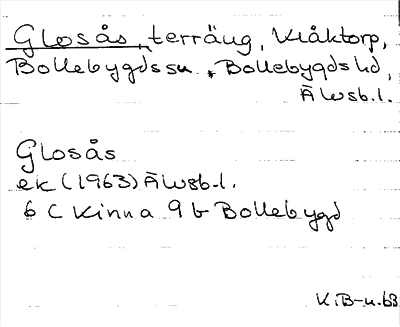 Glosås, terräng, Kråktorp,
Bollebygds sn, Bollebygds hd,
Älvsb.l.
Glosås
ek (1963) Älvsb-l.
6 C Kinna 9 b Bollebygd
K.B-n.63